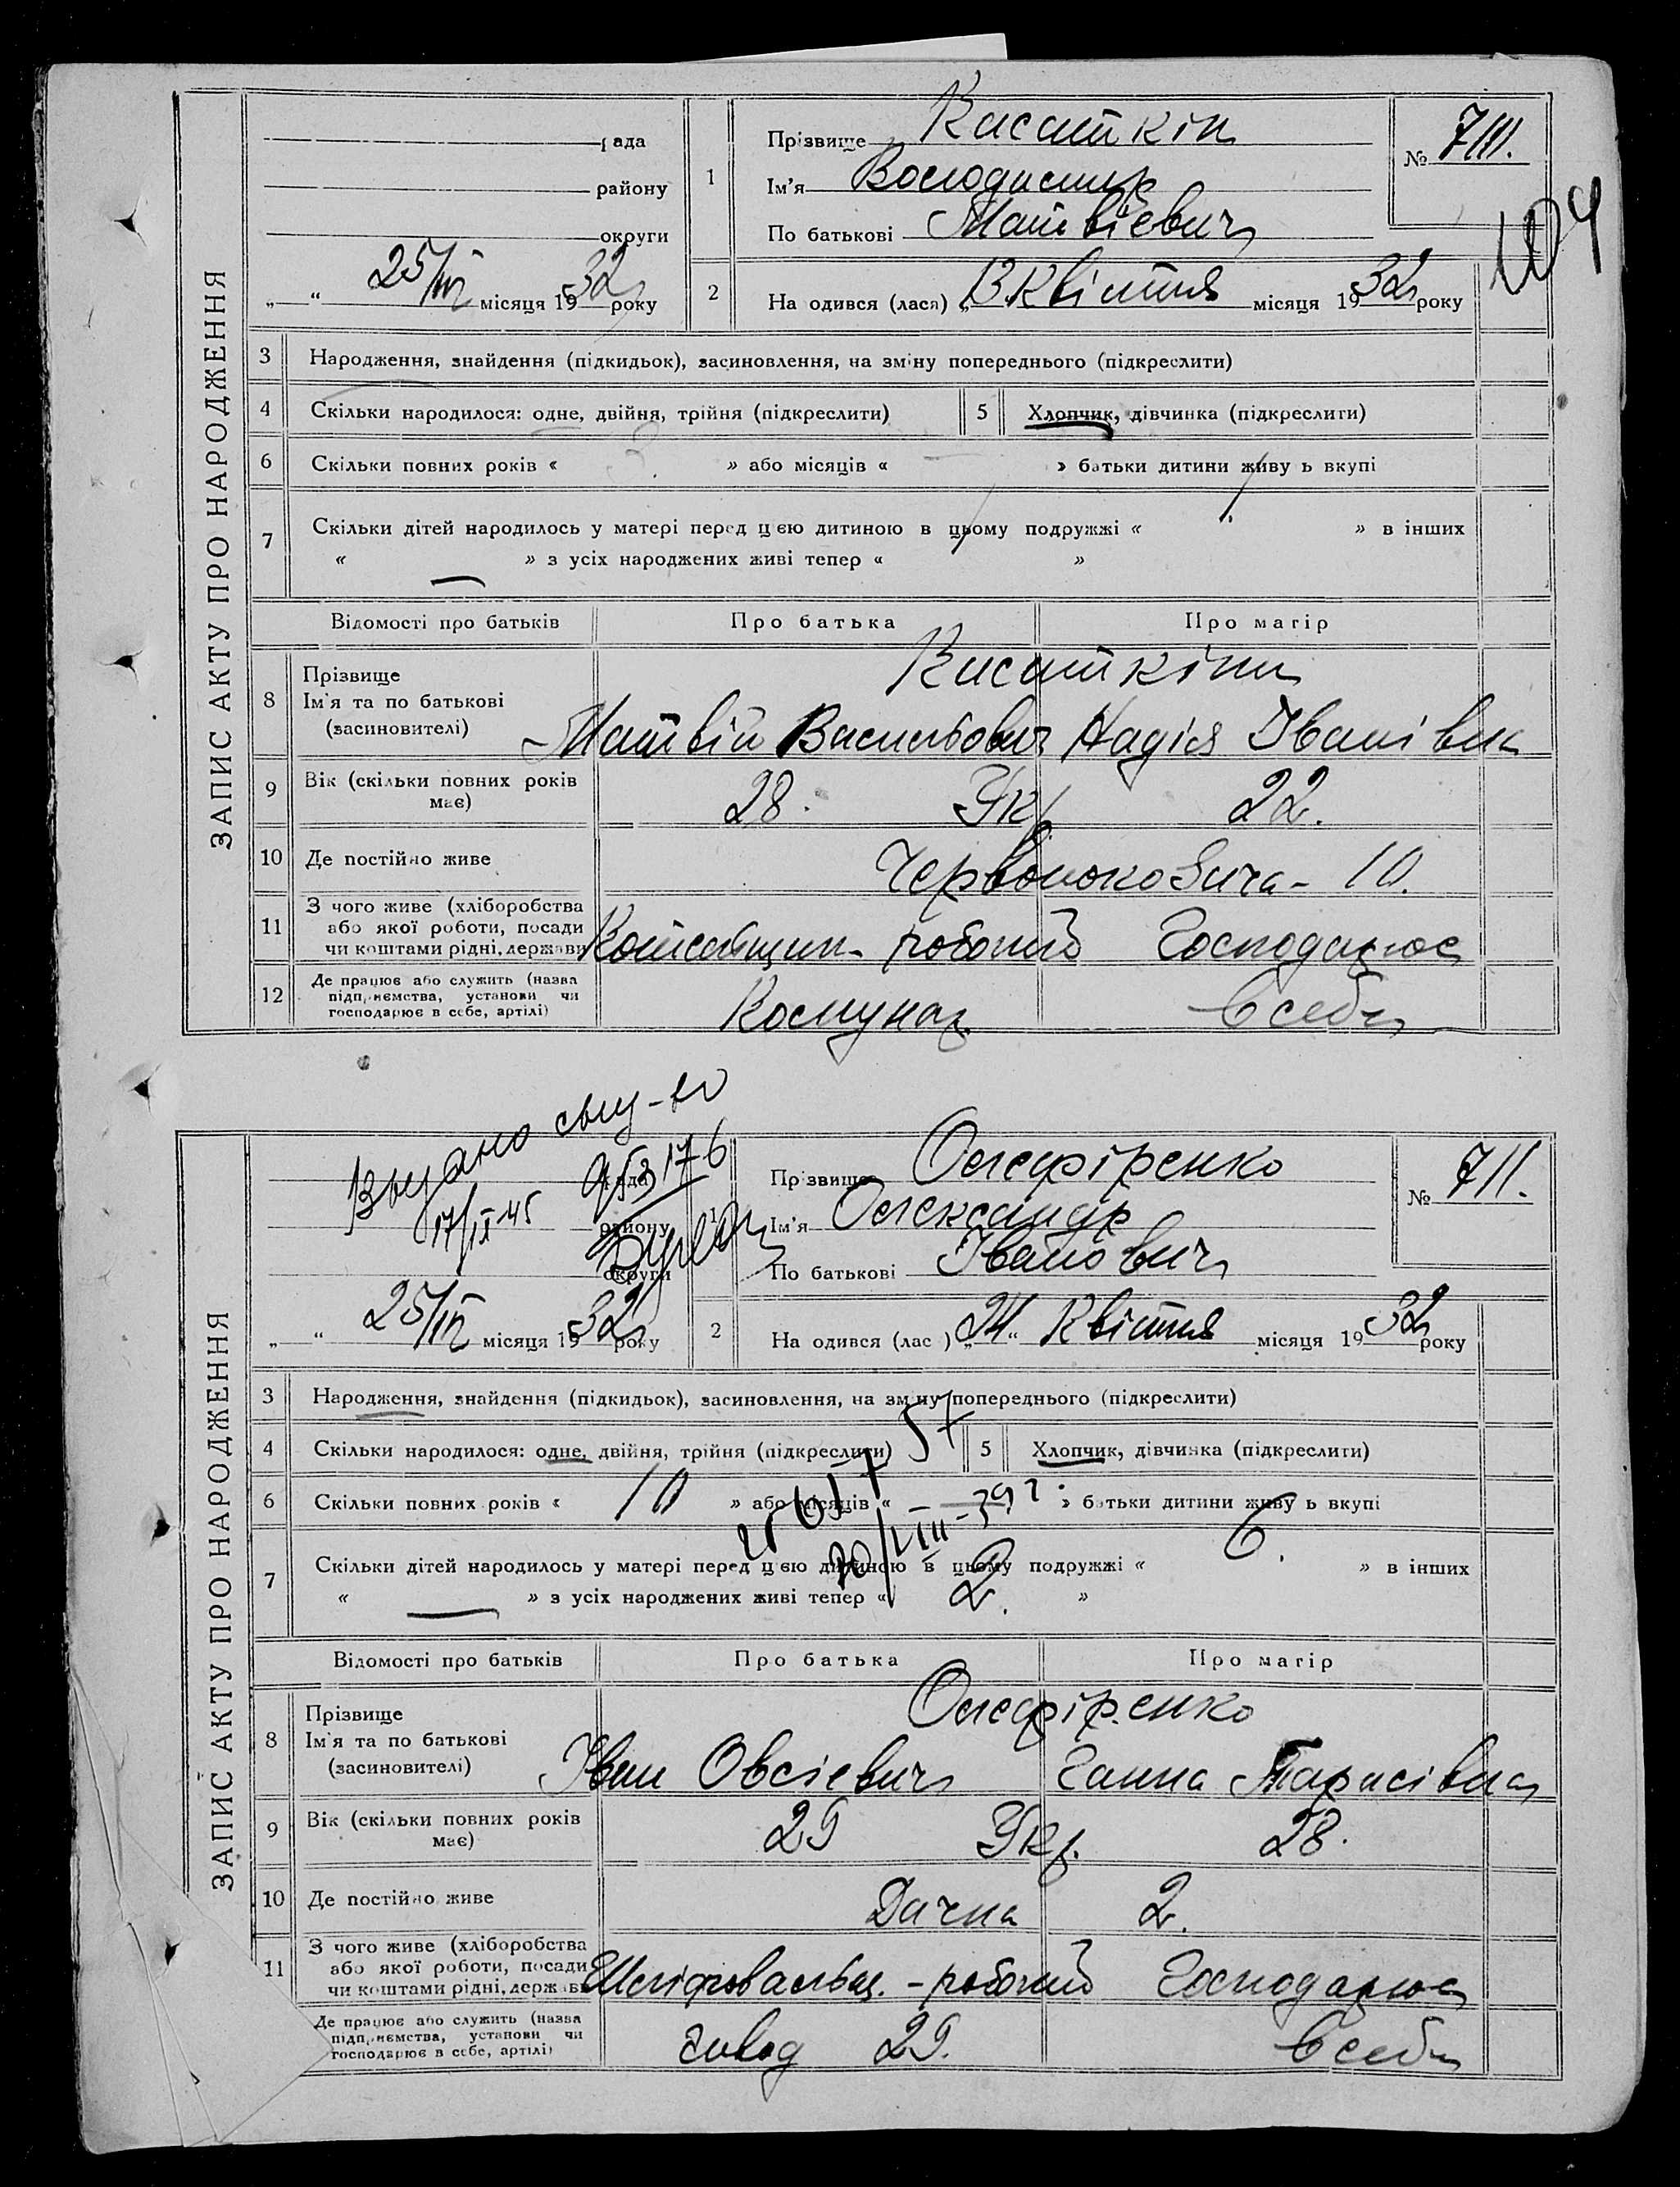 ЗАПИС АКТУ ПРО НАРОДЖЕННЯ
рада
району
округи
„ “ 25/IV місяця 1932 року
1
Прізвище Касаткін
Ім'я Володимир
По батькові Матвієвич
№ 710.
104
2
На одився (лася) „13 Квітня місяця 1932 року
3 Народження, знайдення (підкидьок), засиновлення, на зміну попереднього (підкреслити)
4 Скільки народилося: одне, двійня, трійня (підкреслити)
5 Хлопчик, дівчинка (підкреслити)
6 Скільки повних років « 3. » або місяців « — » батьки дитини живу ь вкупі
7 Скільки дітей народилось у матері перед цією дитиною в цьому подружжі « 1 » в інших
« — » з усіх народжених живі тепер « 1 »
Відомості про батьків Про батька Про матір
8 Прізвище
Ім'я та по батькові
(засиновителі)
Касаткіни
Матвій Васильович Надія Іванівна
9 Вік (скільки повних років має) 28. Укр. 22.
10 Де постійно живе 10.
11 З чого живе (хліборобства або якої роботи, посади чи коштами рідні, держави робочий Господарює
12 Де працює або служить (назва підприємства, установи чи господарює в себе, артілі) Комунар в себе
ЗАПИС АКТУ ПРО НАРОДЖЕННЯ
Выдано свид-во
17/IX-45
рада
району
округи
„ “ 25/IV місяця 1932 року
Прізвище Олефіренко
Ім'я Олександр
По батькові Іванович
№ 711.
2
На одився (лас ) „24“ Квітня місяця 1932 року
3 Народження, знайдення (підкидьок), засиновлення, на зміну попереднього (підкреслити)
4 Скільки народилося: одне, двійня, трійня (підкреслити)
5 Хлопчик, дівчинка (підкреслити)
6 Скільки повних років « 10 » або місяців « — » батьки дитини живу ь вкупі
20/VIII-39 г.
7 Скільки дітей народилось у матері перед цією дитиною в цьому подружжі « 6. » в інших
« — » з усіх народжених живі тепер « 2. »
Відомості про батьків Про батька Про матір
8 Прізвище
Ім'я та по батькові
(засиновителі)
Олефіренко
Іван Овсієвич Ганна Тарасівна
9 Вік (скільки повних років має) 29 Укр. 28.
10 Де постійно живе Дачна 2.
11 З чого живе (хліборобства або якої роботи, посади чи коштами рідні, держави Шліфовальщ. - робочий Господарює
Де працює або служить (назва підприємства, установи чи господарює в себе, артілі) завод 29. в себе